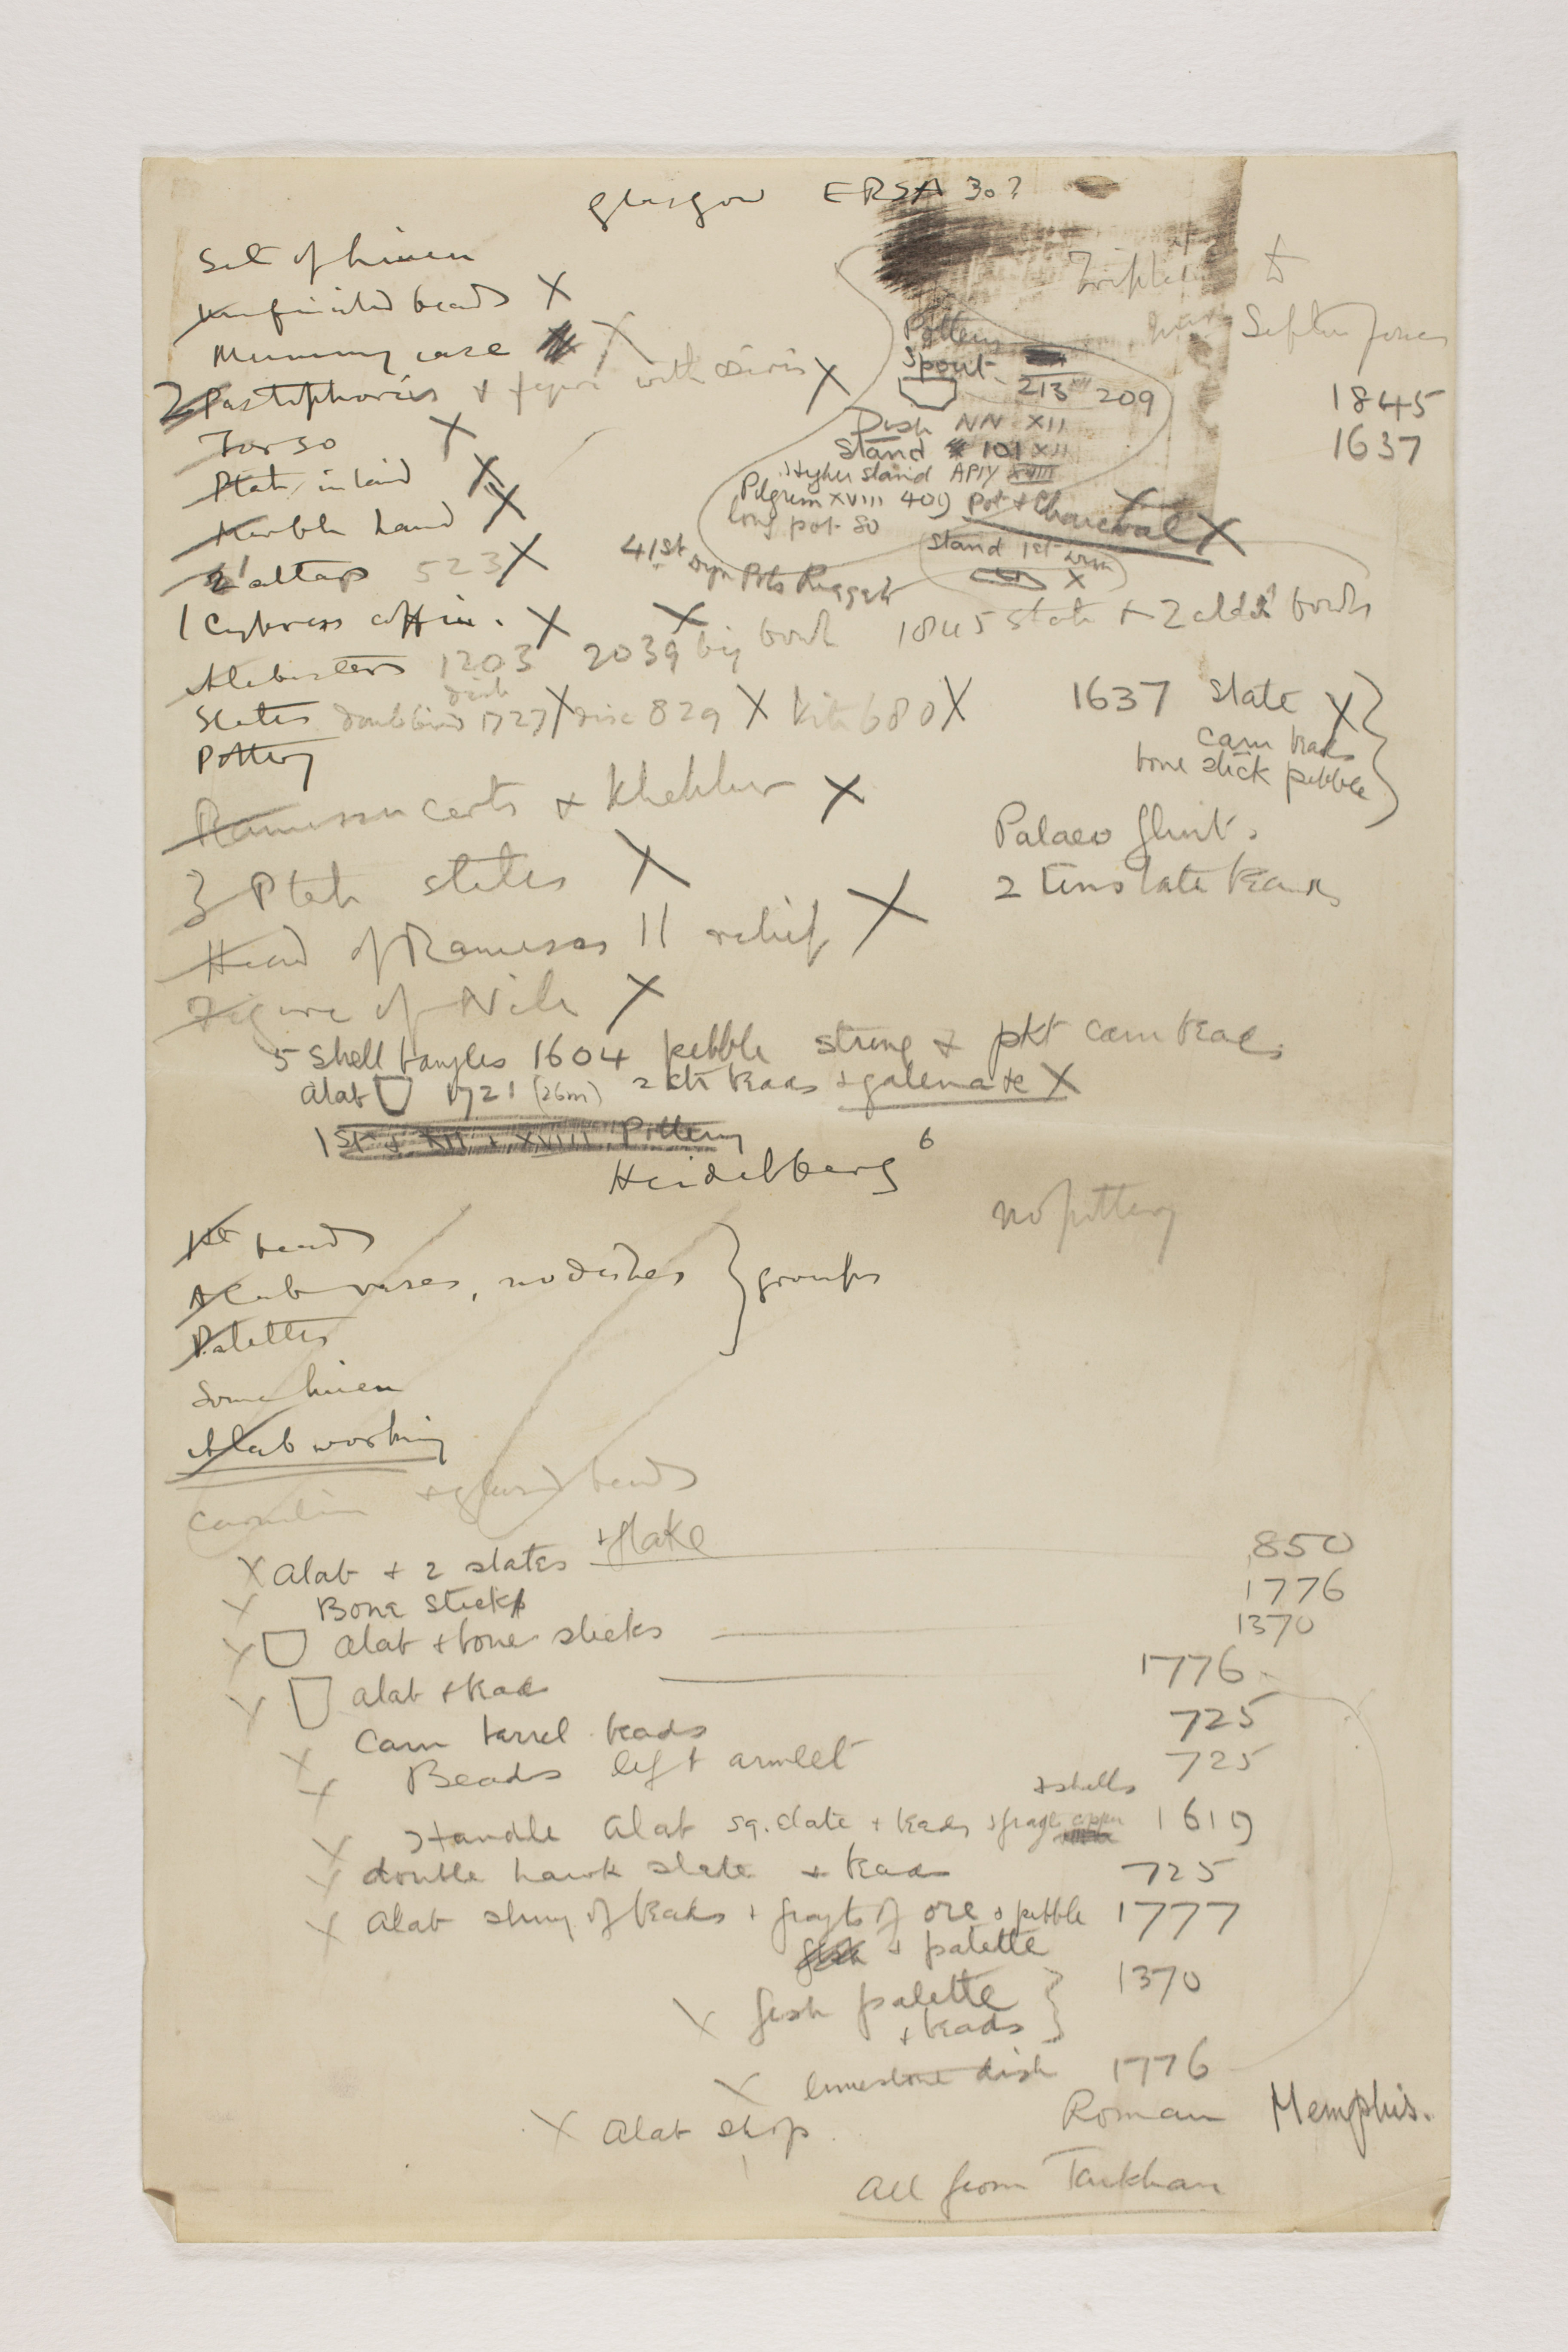 Glasgow ERSA 30?
Set of linen
Unfinished beads X
Mummy case X
2 Pastophorus + figure with Osiris X
Torso X
Ptah, inlaid X
Marble hand X
altars 523 X
1 Cypress coffin. X
Triplets to
Septr Jones
Pottery
Spout
213 209
Dish NN XII
Stand 101 XII
Higher stand AP1Y XVIII
Pilgrim XVIII 409 pot + Charcoal X
long pot 80
Stand 1st Dyn
X
41st Dyn Pots Riqqeh X
1845
1637
Alabasters 1203 2039 big bowl 1845 slate + 2 alab bowls
dish
Slates double bird 1727 X disc 829 X kite 680 X
Pottery
1637 Slate X
carn beads
bone stick pebble
Ramessu carts + Khehlur X
Palaeo flint.
3 Ptah steles X
2 tins late beads
Head of Rameses II relief X
Figure of Nile X
5 Shell bangles 1604 pebble string + pkt carn beads
Alab 1721 (26m) 2 cts beads + galena te X
1st + XII + XVIII Pottery
Heidelberg 6
no pottery
1st beads
Alab vases, no dishes } groups
Palettes
Some linen
Alab working
Carnelian + glazed beads
X Alab + 2 slates + flake 850
X Bone stick 1776
X alab + bone sticks 1370
X alab + beads 1776
X Carn barrel beads 725
X Beads left armlet 725
+ shells
X Handle Alab sq. slate + beads + frags copper 1619
X double hawk slate + beads 725
X Alab string of beads + fragts of ore + pebble 1777
fish + palette
X fish palette } 1370
+ beads
X limestone dish 1776
X Alab strip Roman Memphis.
All from Tarkhan